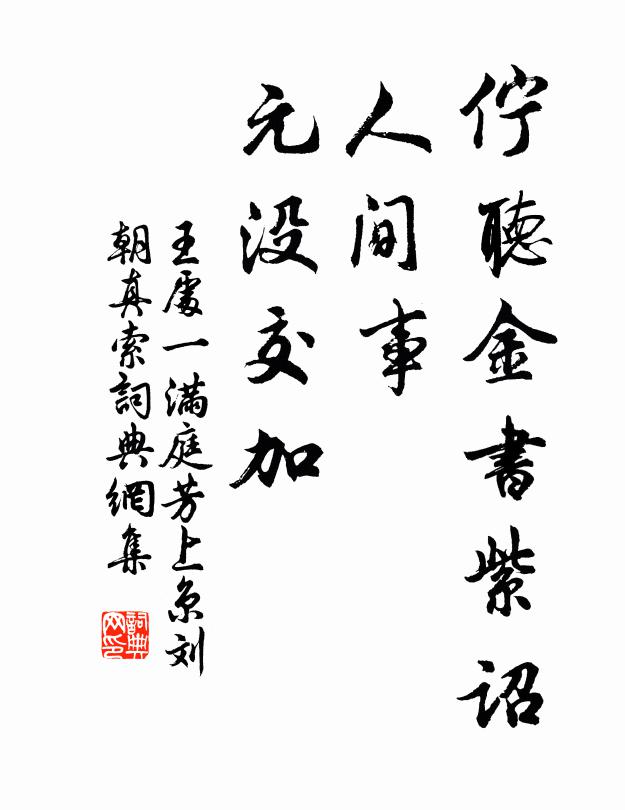 佇聽金書紫詔
人間事
元没交加
王處一滿庭芳上京刘
朝真索詞典網集
詞典网印